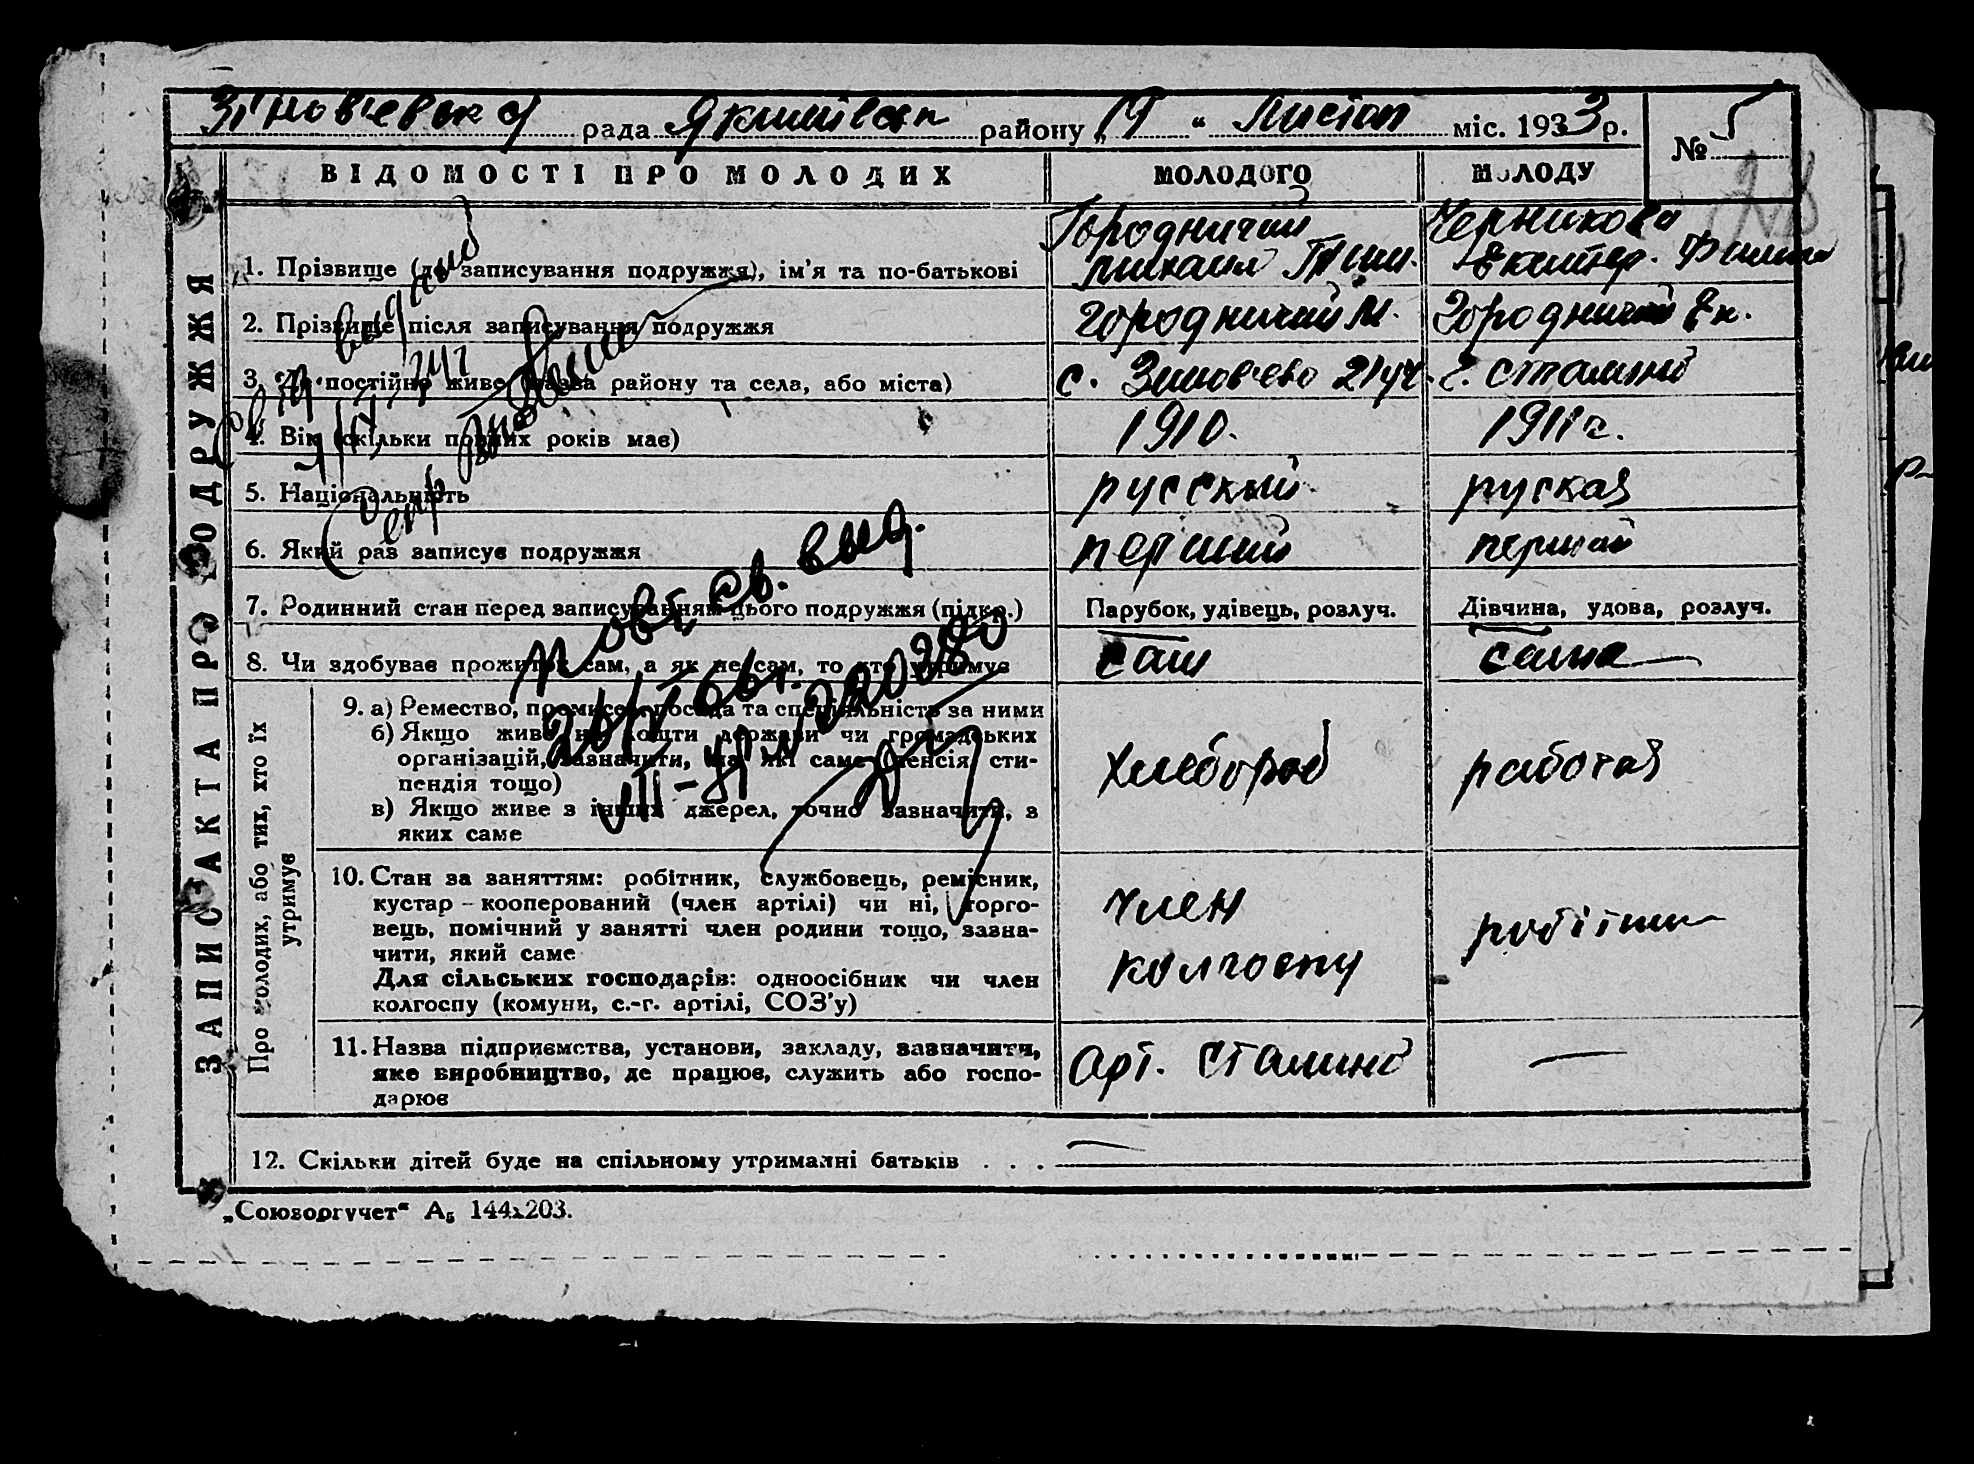 Зіновʼєвська рада Якимівськ району „19“ Листоп міс. 1933 р.
№ 5
ЗАПИС АКТА ПРО ПОДРУЖЖЯ
ВІДОМОСТІ ПРО МОЛОДИХ МОЛОДОГО МОЛОДУ
1. Прізвище (до записування подружжя), ім'я та по-батькові Городничий Михаил Тим. Черникова Екатер. Филип
2. Прізвище після записування подружжя Городничий М. Городничий Ек.
3. Де постійно живе (назва району та села, або міста) с. Зиновʼево 21 уч. г. Сталино
4. Вік (скільки повних років має) 1910. 1911 г.
5. Національність русский руская
6. Який раз записує подружжя перший первый
7. Родинний стан перед записуванням цього подружжя (підкр.) Парубок, удівець, розлуч. Дівчина, удова, розлуч.
8. Чи здобував прожиток сам, а як не сам, то хто утримує сам сама
Про молодих, або тих, хто їх утримує
9. а) Ремество, промисел, посада та спеціяльність за ними
б) Якщо живе на кошти держави чи громадських
організацій, зазначити, на які саме (пенсія, сти-
пендія тощо)
в) Якщо живе з інших джерел, точно зазначити, з
яких саме
хлебороб работая
10. Стан за заняттям: робітник, службовець, ремісник,
кустар-кооперований (член артілі) чи ні, торго-
вець, помічний у занятті член родини тощо, зазна-
чити, який саме
Для сільських господарів: одноосібник чи член
колгоспу (комуни, с.-г. артілі, СОЗ'у)
член
колгоспу
робітни
11. Назва підприємства, установи, закладу, зазначити,
яке виробництво, де працює, служить або госпо-
дарює
Арт. Сталино —
12. Скільки дітей буде на спільному утриманні батьків . . . —
Повт. св. выд.
„Союзоргучет“ А₅ 144х203.